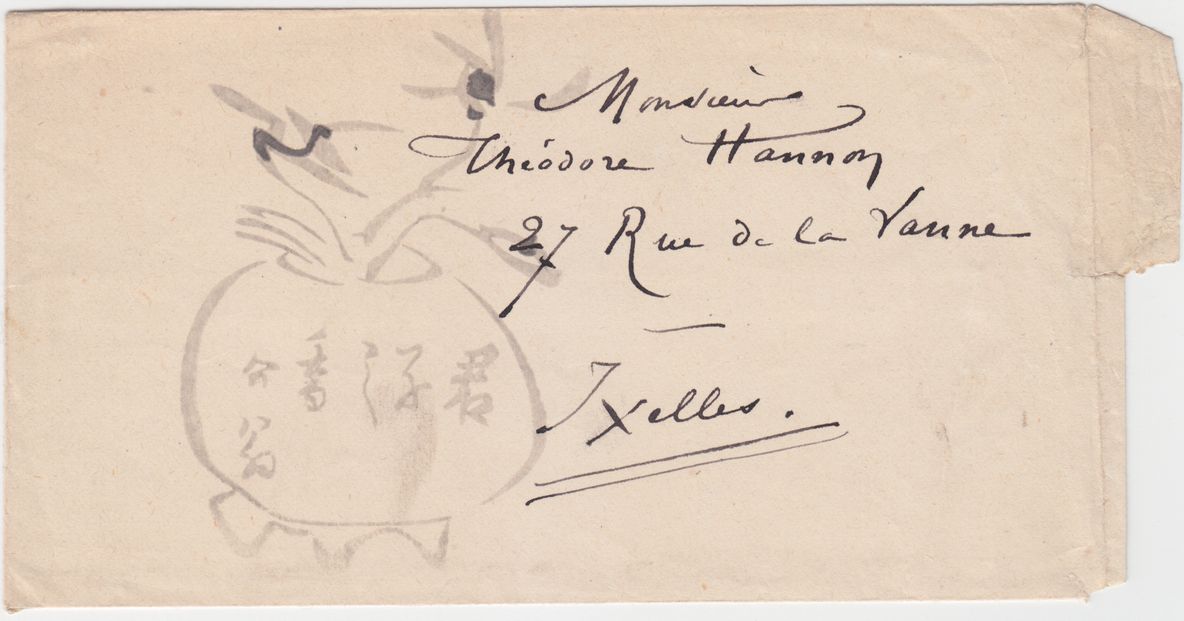 Monsieur
Théodore Hannon
27 Rue de la Vanne
Ixelles.
君
翁